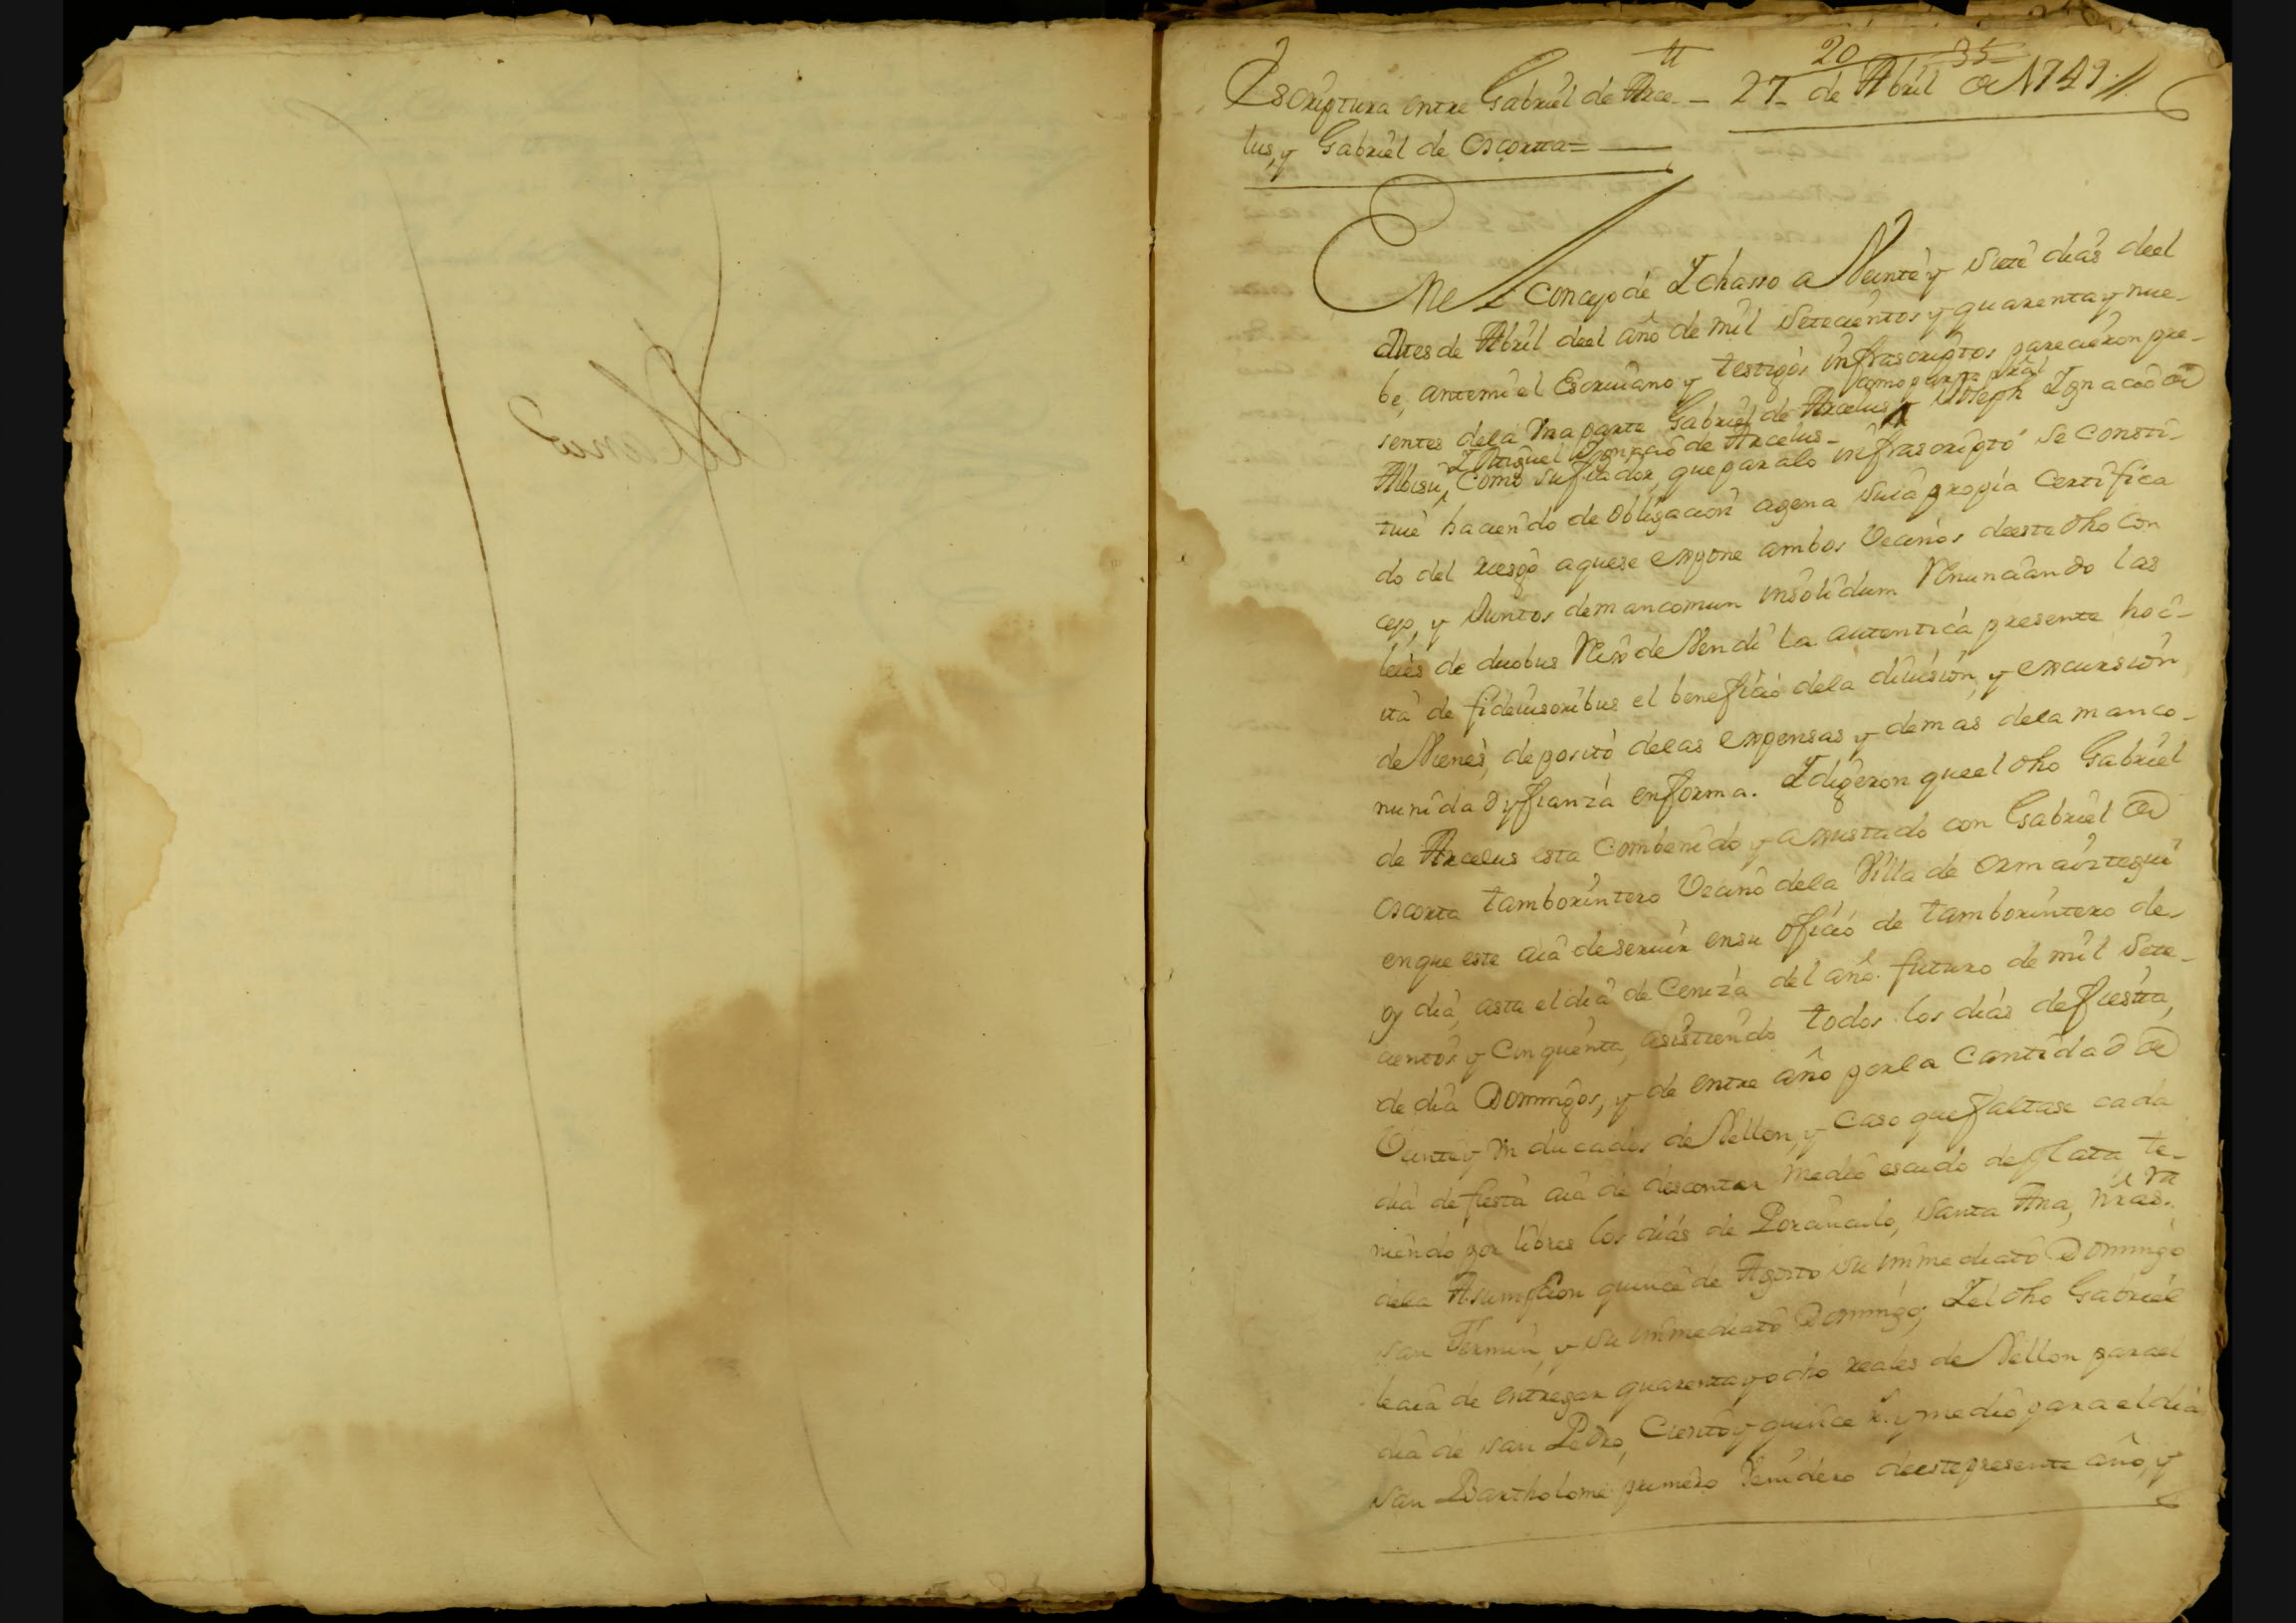 20 35
Escriptura entre Gabriel de Arce- 27 de Abril de 1749 //
lus, y Gabriel de Oscorta=
En el Concejo de Ichasso a Veinte y Siete dias deel
Mes de Abril deel año de mil Setecientos y quarenta y nue-
be, antemi el Escriuano y testigos infrascriptos parecieron pre-
como parte prâl
sentes dela Vna parte Gabriel de Arcelus y Joseph Ignacio de
I Miguel Ignacio de Arcelus-
Albisu, Como su fiador, que para lo infrascripto se Consti-
tuie haciendo de obligacion agena suia propia Certifica
do del riesgo aquese expone ambos Vecinos deeste dho Con
cejo, y Juntos demancomun insolidum Renunciando las
leies de duobus Reis de Vendi la autentica presente hoc-
ita de fideiusoribus el beneficio dela diuision, y excursion
de Vienes, deposito delas expensas y demas dela manco-
nunidad y fianza enforma. I digeron queel dho Gabriel
de Arcelus esta Combenido y ajustado con Gabriel de
Oscorta tamborintero Vecino dela Villa de Ormaiztegui
enque este aia deseruir ensu oficio de tamborintero de-
oy dia, asta el dia de Ceniza del año futuro de mil Sete-
cientos y Cinquenta, asistiendo todos los dias de fiesta,
de dia Domingos, y de entre año porla Cantidad de
Veinte y Vn ducados de Vellon, y Caso que faltase cada
dia de fiesta aia de descontar medio escudo de plata te-
niendo por libres los dias de Porciuncula, Santa Ana, nrâ srâ
dela Asumpcion quince de Agosto su immediato Domingo
san Fermin, y su immediato Domingo; I el dho Gabriel
le aia de entregar quarenta y ocho reales de Vellon parael
dia de san Pedro, Ciento y quince r. y medio para el dia
san Bartholome primero Venidero deeste presente año, y